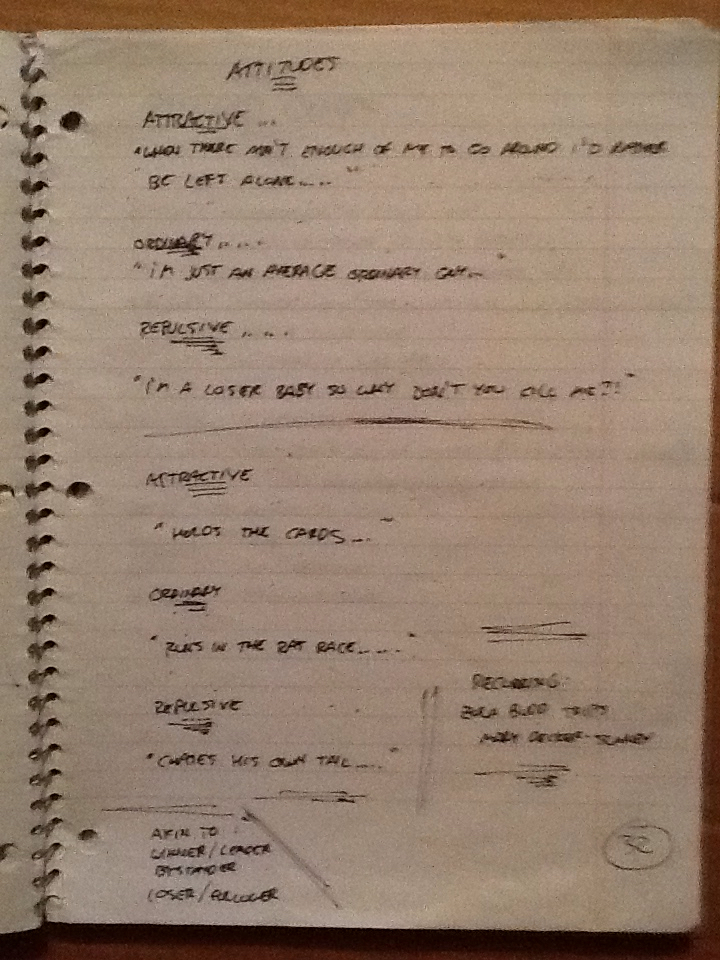 ATTITUDES
ATTRACTIVE ...
"WHEN THERE AIN'T ENOUGH OF ME TO GO AROUND I'D RATHER
BE LEFT ALONE....."
ORDINARY .....
"I'M JUST AN AVERAGE ORDINARY GUY..."
REPULSIVE .....
"I'M A LOSER BABY SO WHY DON'T YOU KILL ME?!"
ATTRACTIVE
"HOLDS THE CARDS...."
ORDINARY
"RUNS IN THE RAT RACE....."
REPULSIVE
"CHASES HIS OWN TAIL....."
AKIN TO :
WINNER/LEADER
BYSTANDER
LOSER/FOLLOWER
RECURRING:
ZOLA BUDD TRIPS
MARY DECKER-SLANEY
32